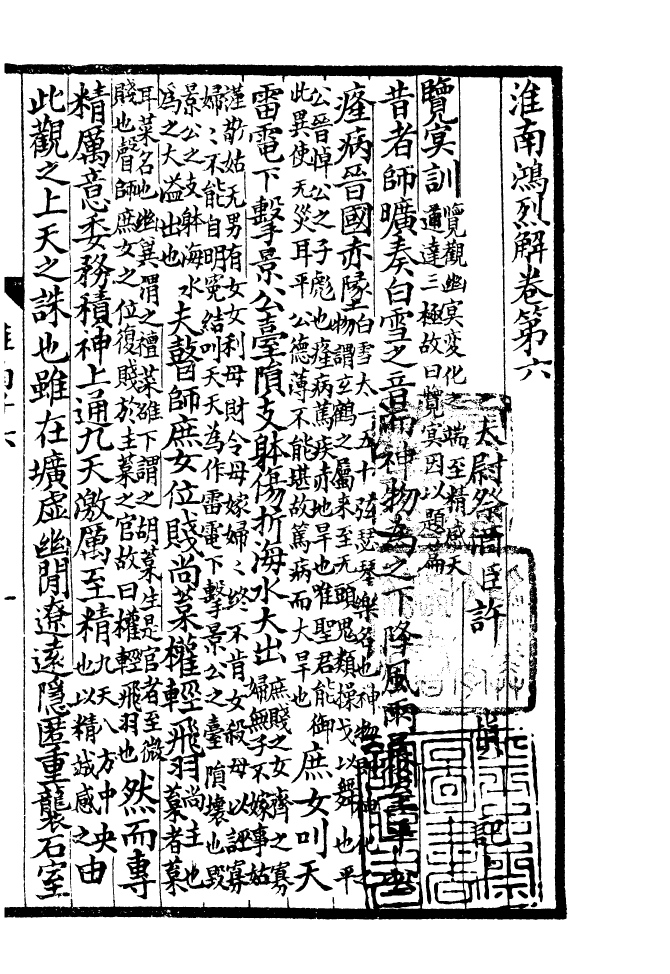 淮南鴻烈解卷第六
太尉祭酒臣許慎記上
覽冥訓覽觀幽冥変化之端至精感天
通達三極故曰覽冥因以題篇
昔者師曠奏白雪之音而神物為之下降風雨暴至平公
癃病晉國赤地白雪大一五十弦瑟琴樂名也神物即神化之
物謂玄鶴之屬來至无頭鬼類操戈以舞也平
公晉悼公之子彪也癃病篤疾赤地旱也唯聖君能御
此異使无災耳平公德薄不能堪故篤病而大旱也庶女叫天
雷電下擊景公臺隕支躰傷折海水大出庶賤之女齊之寡
婦無子不嫁事姑
謹敬姑无男有女女利母財令母嫁婦婦終不肯女殺母以誣寡
婦〻不能自明寃結叫天天為作雷電下擊景公之臺隕壞也毀
景公之支躰海水
為之大溢出也夫瞽師庶女位賤尚菜權輕飛羽尚主也
菜者菜
耳菜名也幽冀謂之襢菜雒下謂之胡菜主是官者至微
賤也瞽師庶女之位復賤於主菜之官故曰權輕飛羽也然而專
精厲意委務積神上通九天激厲至精九天八方中央
也以精誠感之由
此觀之上天之誅也雖在壙虛幽閒遼遠隱匿重襲石室